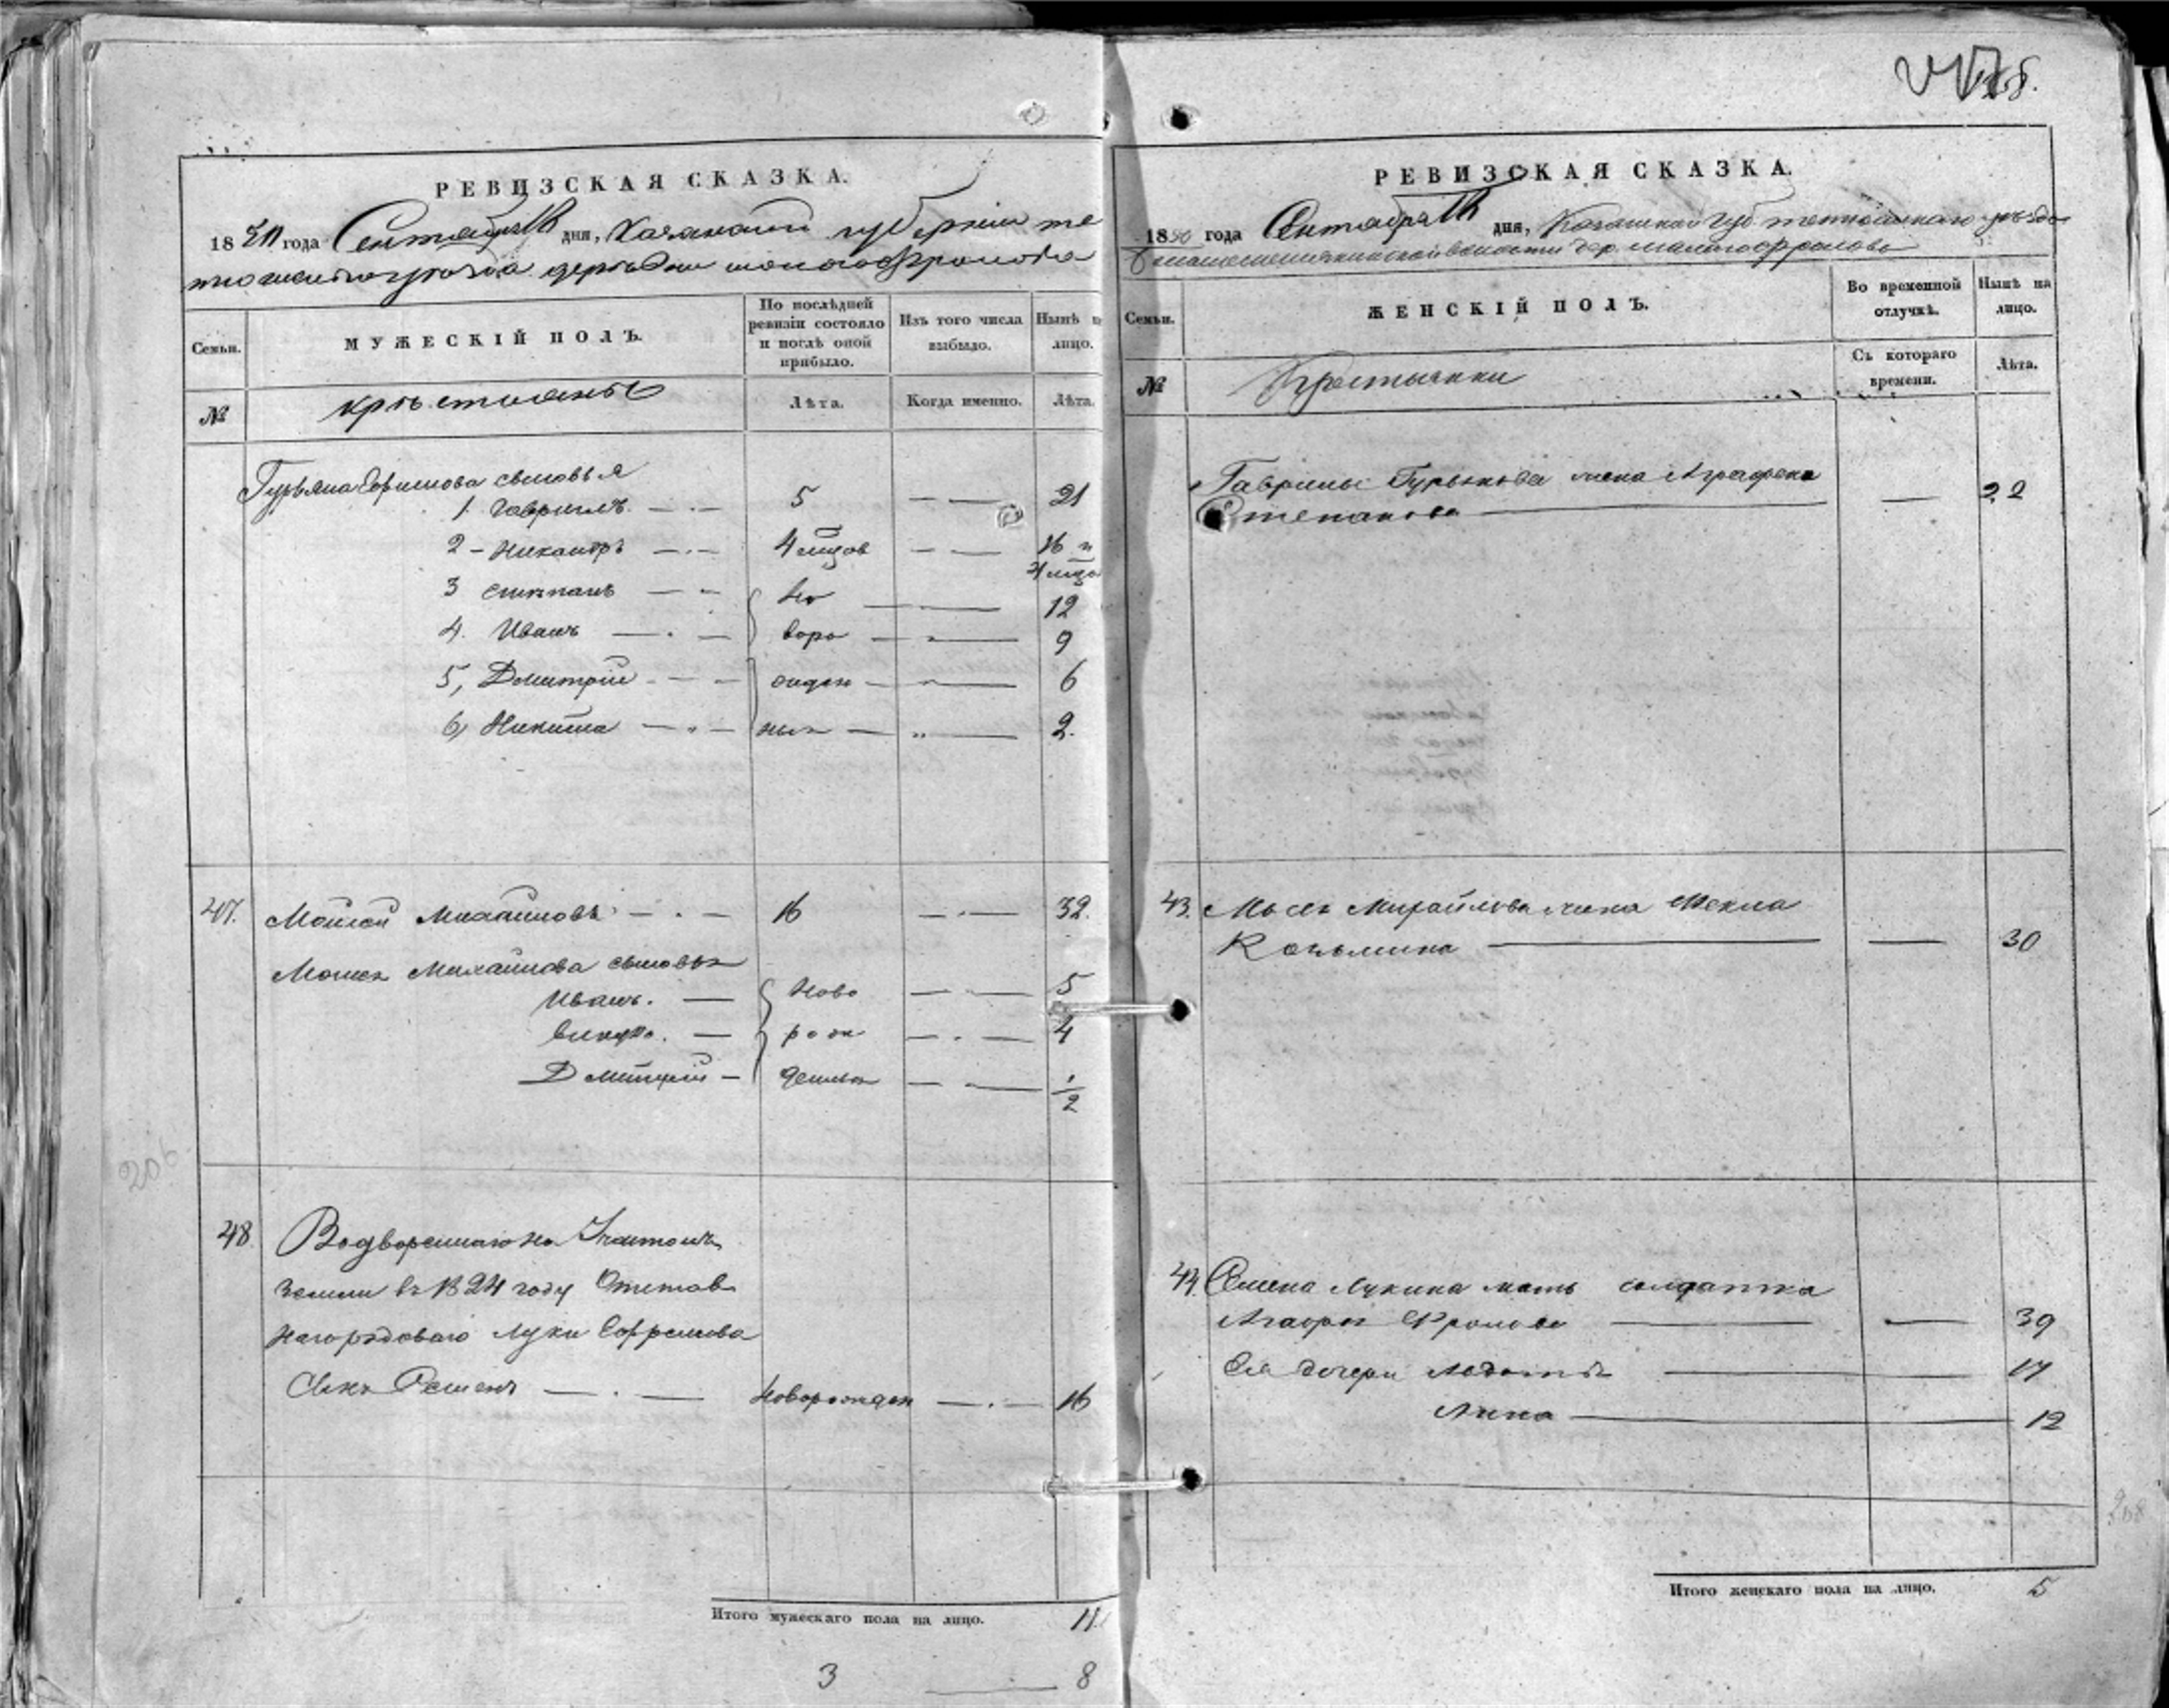 РЕВИЗСКАЯ СКАЗКА.
18 года Сентября дня, Казанской губернiи те
деревни малаго Фролова
Семьи.
МУЖЕСКIЙ ПОЛЪ.
По послѣдней ревизiи состояло и послѣ оной прибыло.
Изъ того числа выбыло.
Нынѣ н
лицо.
№
крѣстиянѣ
Лѣта.
Когда именно.
Лѣта.
Гурьяна Ефимова сыновья
1. Гаврилъ. 5 21
2 - Никандръ 4 мцов 16 и
4 мцо
3 Степанъ но 12
4. Иванъ воро 9
5, Дмитрiй жден 6
6, Никита ныя 2.
47. Мойсей Михайловъ 16 32.
Мойсея Михайлова сыновья
Иванъ. Ново 5
рож 4
Дмитрiй 1/2
48. Водвореннаго на
земли въ 1824 году
Луки Ефремова
Сынъ Семенъ Новорожден 16
Итого мужескаго пола на лицо. 11.
3 8
РЕВИЗСКАЯ СКАЗКА.
1850 года Сентября дня, Казанской Губ. уѣзда
волости дер. малаго фролова
Семьи.
ЖЕНСКIЙ ПОЛЪ.
Во временной отлучкѣ.
Нынѣ на лицо.
№
Крестьянки
Съ котораго времени.
Лѣта.
Гаврилы Гурьянова жена Аграфена
Степанова 22
43. Мосея Михайлова жена Фекла
Козьмина 30
44. Семена Лукина мать солдатка
Фролова 39
Ея дочери Авдотья 17
Анна 12
Итого женскаго пола на лицо. 5
206
208